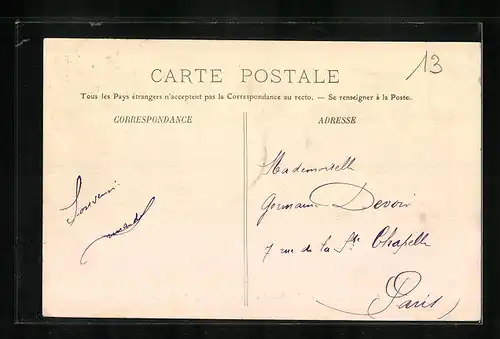 13
CARTE POSTALE
Tous les Pays étrangers n'acceptent pas la Correspondance au recto. — Se renseigner à la Poste.
CORRESPONDANCE
ADRESSE
Souvenir
Mademoiselle
Germaine Devoir
7 rue de la Ste Chapelle
Paris